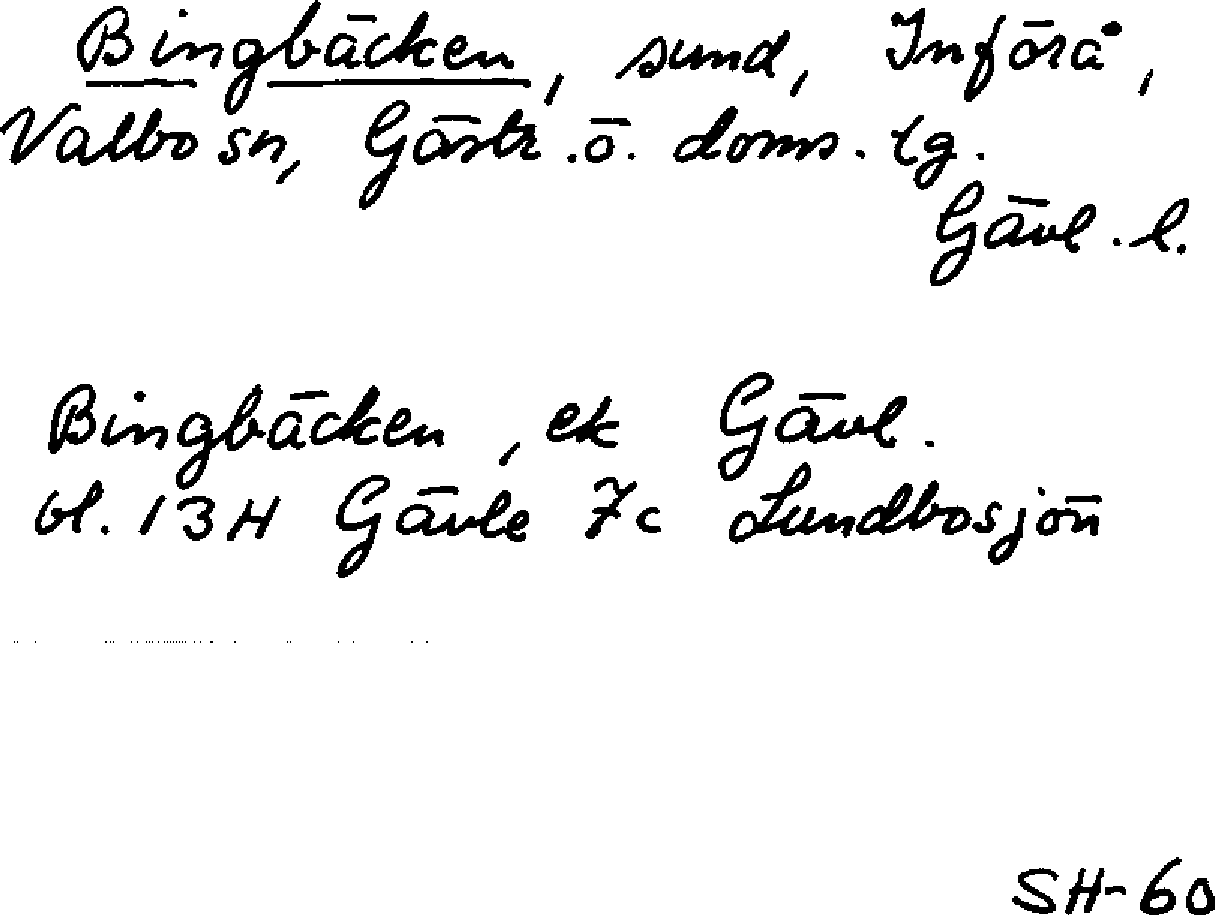 Bingbäcken, sund, Införå,
Valbo sn, Gästr. ö. doms. tg.
Gävl. l.
Bingbäcken, ek Gävl.
bl. 13H Gävle 7c Lundbosjön
SH-60